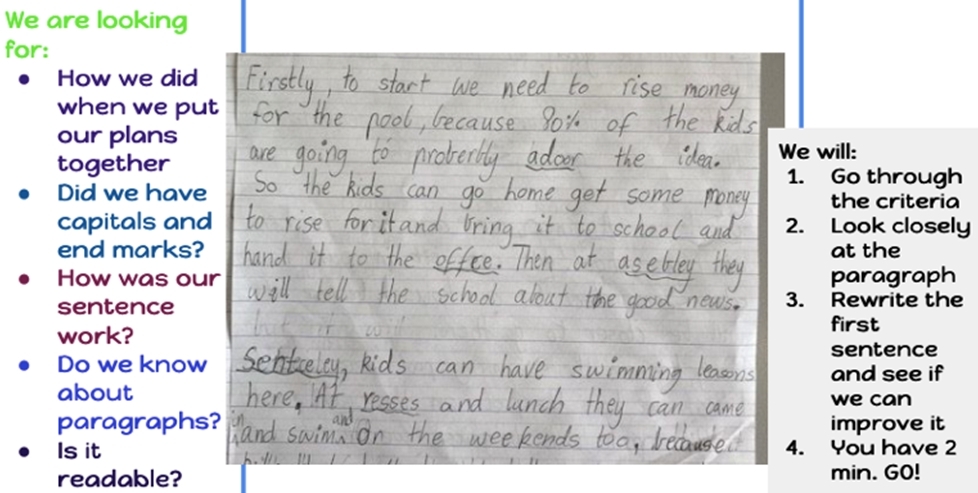 We are looking
for:
• How we did
when we put
our plans
together
• Did we have
capitals and
end marks?
• How was our
sentence
work?
• Do we know
about
paragraphs?
• Is it
readable?
Firstly, to start we need to rise money
for the pool, because 80% of the kids
are going to proberbly adoor the idea.
So the kids can go home get some money
to rise for it and bring it to school and
hand it to the offce. Then at asebley they
will tell the school about the good news.
Sentceley, kids can have swimming leasons
here, At resses and lunch they can came
in and swim. and On the weekends too, because
We will:
1. Go through
the criteria
2. Look closely
at the
paragraph
3. Rewrite the
first
sentence
and see if
we can
improve it
4. You have 2
min. GO!